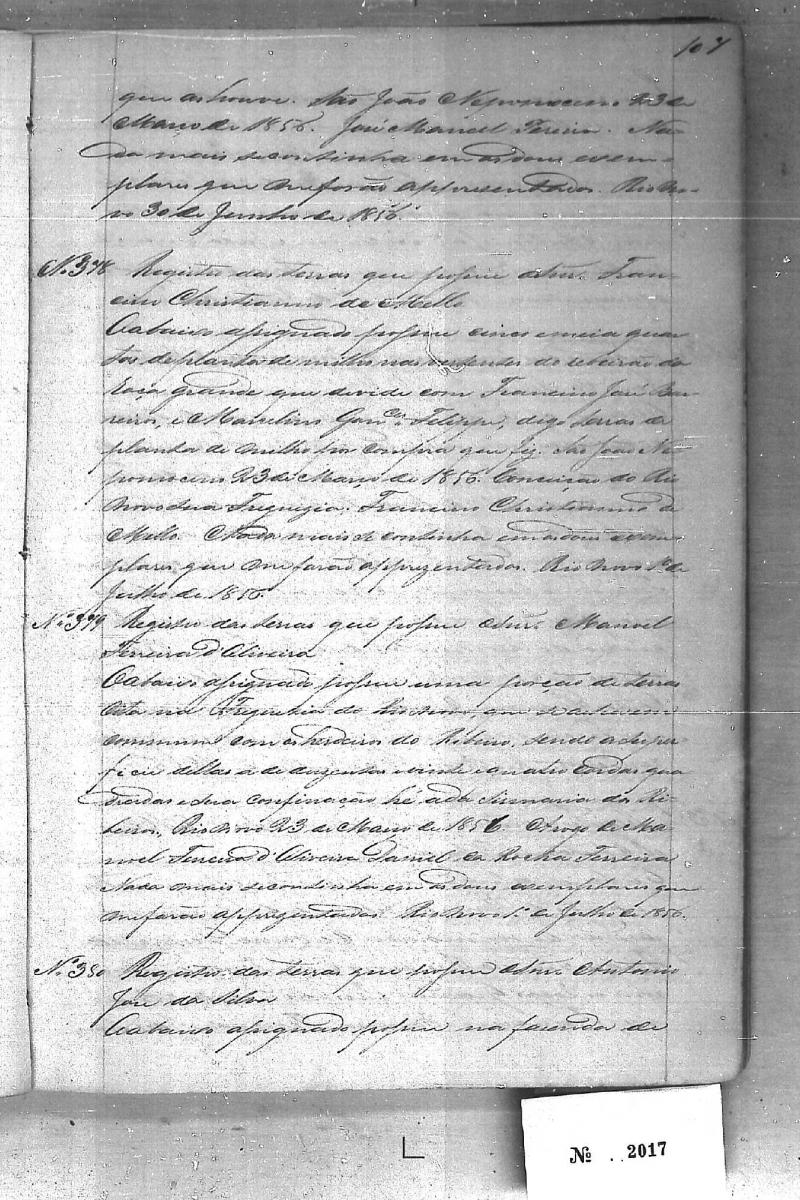 107
que as houve. São João Nepomoceno 23 de
Março de 1856. José Manoel Pereira. Na-
da mais se continha em os dous exem-
plares que me forão appresentados. Rio No-
vo 30 de Junho de 1856.
No. 378 Registro das terras que possue o Snr. Fran-
cisco Christianno de Mello
O abaixo assignado possue cinco e meia quar
tas de planta de milho nas vertentes do ribeirão da
roça grande que devide com Francisco José Bar
reiros, e Marcelino Gonçes Felippe, digo terras de
planta de milho por compra que fiz. São João Ne
pomoceno 23 de Março de 1856. Conceição do Rio
Novo sua Freguezia. Francisco Christianno de
Mello. Nada mais se continha em os dous exem
plares que me farão apprezentados. Rio Novo 1º de
Julho de 1856.
No. 379 Registro das terras que possue o Snr. Manoel
Ferreira d'Oliveira
O abaixo assignado possue uma porção de terras
cita na Freguezia do Rio Novo, que se achão em
commum com os herdeiros do Ribeiro, sendo a super
ficie dellas a de duzentas e vinte e quatro cordas qua
dradas e sua confinação hé a da Sismaria dos Ri-
beiros, Rio Novo 23 de Março de 1856. A rogo de Ma-
noel Ferreira d'Oliveira Daniel da Rocha Ferreira
Nada mais se continha em os dous exemplares que
me farão apprezentados. Rio Novo 1º de Julho de 1856.
No. 380 Registro das terras que possue o Snr. Antonio
José da Silva
O abaixo assignado possue na fazenda de
№ 2017